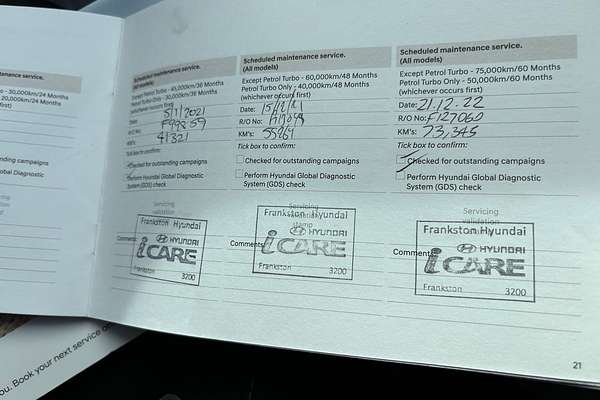 tenance service.
- 30,000km/24 Months
20,000km/24 Months
irst)
campaigns
Diagnostic
u. Book your next service
Scheduled maintenance service.
(All models)
Except Petrol Turbo - 45,000km/36 Months
Petrol Turbo Only - 30,000km/36 Months
(whichever occurs first)
Date: 5/1/2021
R/O No:
KM's: 41321
Tick box to confirm:
Checked for outstanding campaigns
Perform Hyundai Global Diagnostic
System (GDS) check
Servicing
validation
Frankston Hyundai
HYUNDAI
Comments
iCARE
Frankston 3200
Scheduled maintenance service.
(All models)
Except Petrol Turbo - 60,000km/48 Months
Petrol Turbo Only - 40,000km/48 Months
(whichever occurs first)
Date:
R/O No:
KM's:
Tick box to confirm:
Checked for outstanding campaigns
Perform Hyundai Global Diagnostic
System (GDS) check
Servicing
Frankston Hyundai
stamp
HYUNDAI
Comments
iCARE
Frankston 3200
Scheduled maintenance service.
(All models)
Except Petrol Turbo - 75,000km/60 Months
Petrol Turbo Only - 50,000km/60 Months
(whichever occurs first)
Date: 21.12.22
R/O No: F127060
KM's: 73,345
Tick box to confirm:
Checked for outstanding campaigns
Perform Hyundai Global Diagnostic
System (GDS) check
Servicing
validation
Frankston Hyundai
HYUNDAI
Comments
iCARE
Frankston 3200
21